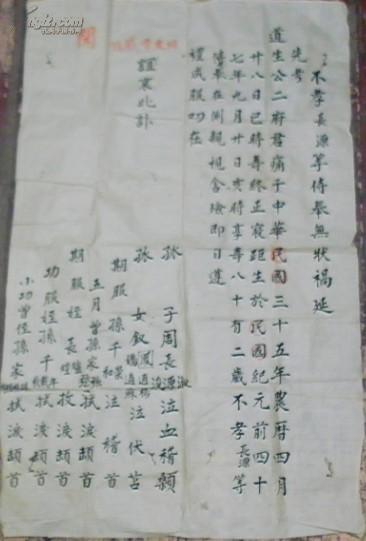 不孝長源等侍奉無狀禍延
先考
道生公二府君痛于中華民國三十五年農曆四月
廿八日巳時壽終正寢距生於民國紀元前四十
七年九月廿日亥時享壽八十有二歲不孝長源等
隨侍在側親視含殮即日遵
禮成服叨在
誼哀此訃
聞
子周長源泣血稽顙
女 泣伏苫
期服孫千 泣稽首
五月曾孫家 拭淚頓首
期服姪長 拉淚頓首
功服姪孫千 拭淚頓首
小功曾姪孫家 拭淚頓首